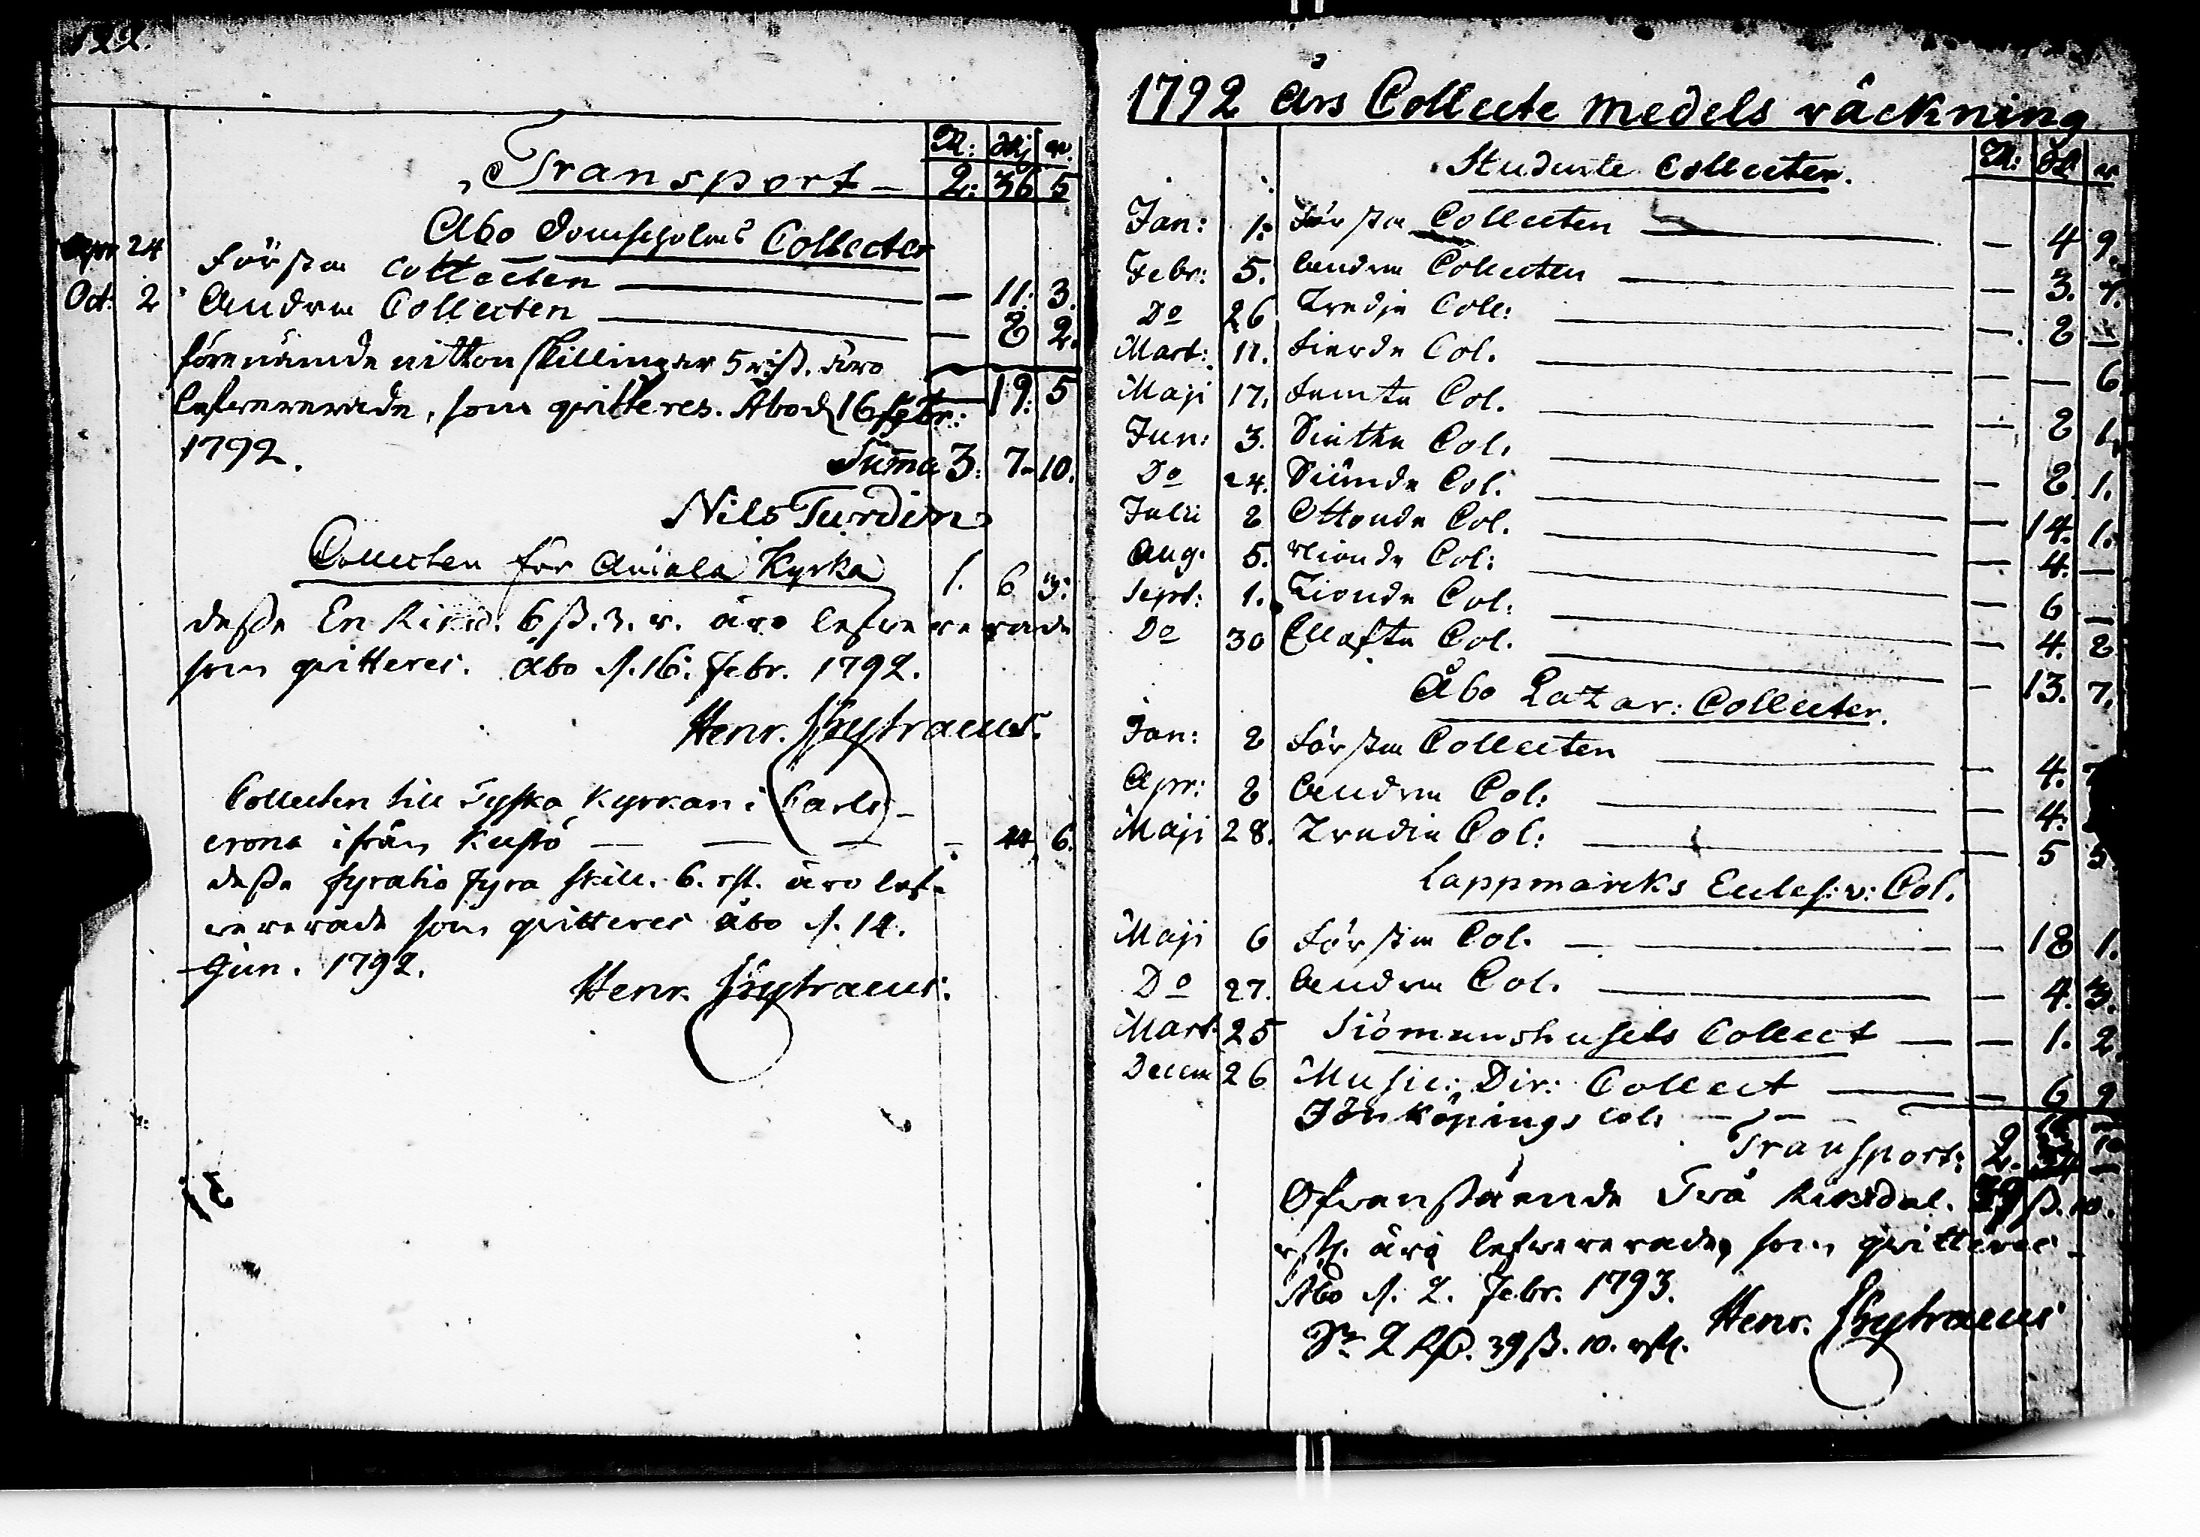 122.
R: ss r.
Transport — 2: 36 5
Åbo Domscholæ Collecter
Apr 24 Första Collecten — 11: 3.
Oct: 2 Andra Collecten — 8 2.
förenämde nitton skillingar 5 rst. äro
lefwererade, som qvitteres. Åbo d 16 febr: 19: 5
1792.
Summa 3: 7. 10.
Nils Turdin
Collecten för Aniala Kyrka 1. 6 3:
desse En Riksd. 6 ß. 3. r. äro lefwererade
som qvitteres. Åbo d. 16. Febr. 1792.
Henr.
Collecten till Tyska Kyrkan i Carls-
crona ifrån Kustö — — — - 44 6.
desse fyratio fyra skill. 6. rst. äro lef-
wererade som qvitteres Åbo d. 14.
Jun. 1792.
Henr.
1792 Års Collecte medels räckning
Studente Collecter. R: ss r
Jan: 1. Första Collecten — 4 9.
Febr: 5. Andra Collecten — 3. 7.
Do 26 Tredje Coll: — 8 —
Mart: 11. Fierde Col. — — 6.
Maji 17. Femte Col. — 8 1.
Jun: 3. Siette Col. — 8. 1.
Do 24. Siunde Col. — 14. 1.
Julii 8 Ottonde Col. — 4. —
Aug. 5. Nionde Col: — 6 —
Sept: 1. Tionde Col. — 4. 8
Do 30 Ellofte Col. — 13. 7.
Åbo Lazar: Collecter.
Jan: 8 Första Collecten — 4.
Apr: 8 Andra Col: — 4.
Maji 28. Tredie Col: — 5 5
Lappmarcks Eccles: v: Col.
Maji 6 Första Col. — 18 1.
Do 27. Andra Col. — 4. 3.
Mart. 25 Siömanshusets Collect — — 1. 2.
Decem 26 Music: Dir: Collect — 6 9
Jönköpings Col: — — —
Transport: 2.
Ofvanstående Två Riksdal. 39 ß. 10.
rst. äro lefwererade, som qvitteres
Åbo d. 2. Febr. 1793.
Henr.
Sr 2 Rd. 39 ß. 10. rst.